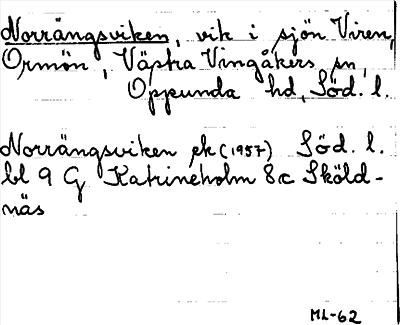 Norrängsviken, vik i sjön Viren,
Ormön, Västra Vingåkers sn,
Oppunda hd, Söd. l.
Norrängsviken ek (1957) Söd. l.
bl 9 G Katrineholm 8c Sköld-
näs
ML-62